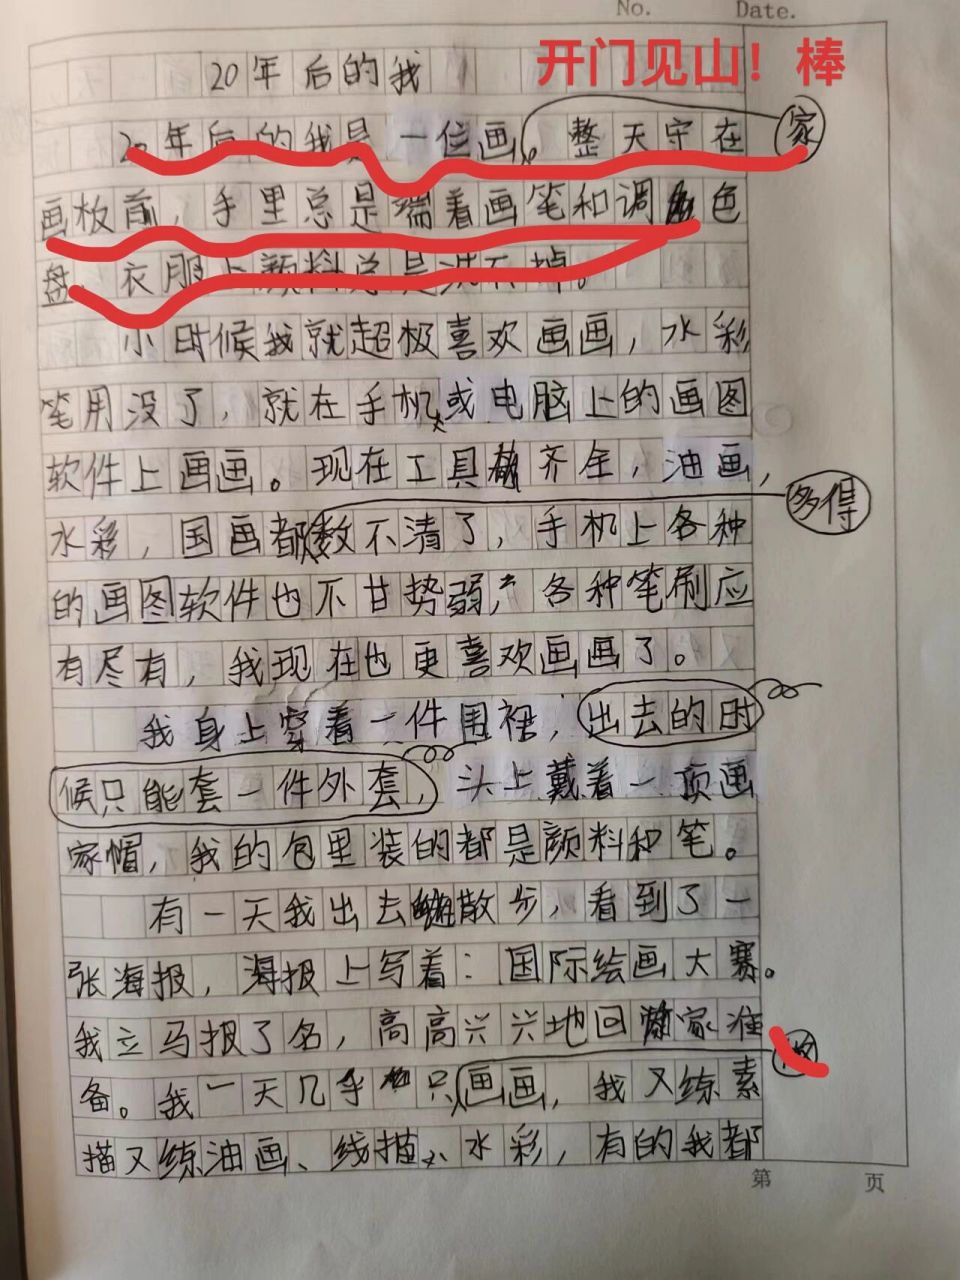 No. Date.
开门见山！棒
20年后的我
20年后的我是一位画家。整天守在
画板前，手里总是端着画笔和调色
盘 衣服上颜料总是洗不掉。
小时候我就超极喜欢画画，水彩
笔用没了，就在手机或电脑上的画图
软件上画画。现在工具齐全，油画，
水彩，国画都多得数不清了，手机上各种
的画图软件也不甘势弱，各种笔刷应
有尽有，我现在也更喜欢画画了。
我身上穿着一件围裙，出去的时
候只能套一件外套，头上戴着一顶画
家帽，我的包里装的都是颜料和笔。
有一天我出去散步，看到了一
张海报，海报上写着：国际绘画大赛。
我立马报了名，高高兴兴地回家准
备。我一天几乎只画画，我又练素
描又练油画、线描、水彩，有的我都
第 页